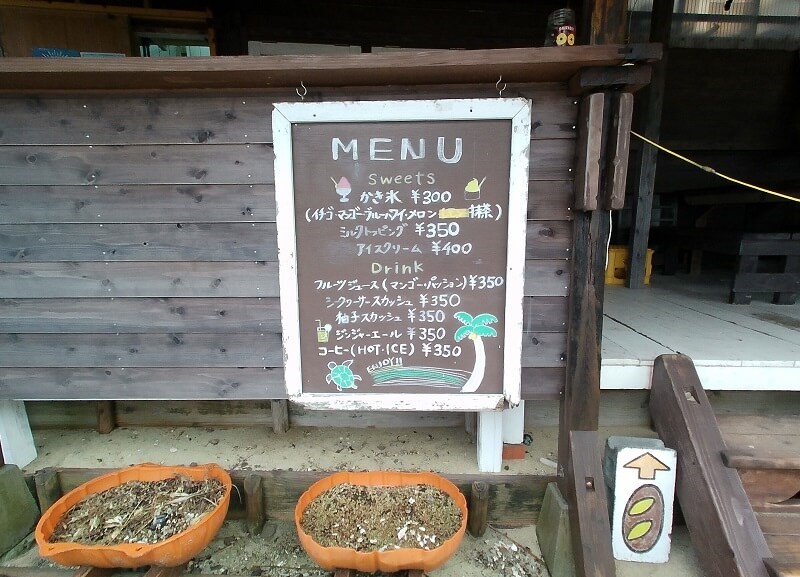 MENU
Sweets
かき氷 ¥300
(イチゴ・マンゴー・ブルーハワイ・メロン 抹茶)
ミルクトッピング ¥350
アイスクリーム ¥400
Drink
フルーツジュース(マンゴー・パッション)¥350
シークヮーサースカッシュ ¥350
柚子スカッシュ ¥350
ジンジャーエール ¥350
コーヒー(HOT・ICE) ¥350
ENJOY!!